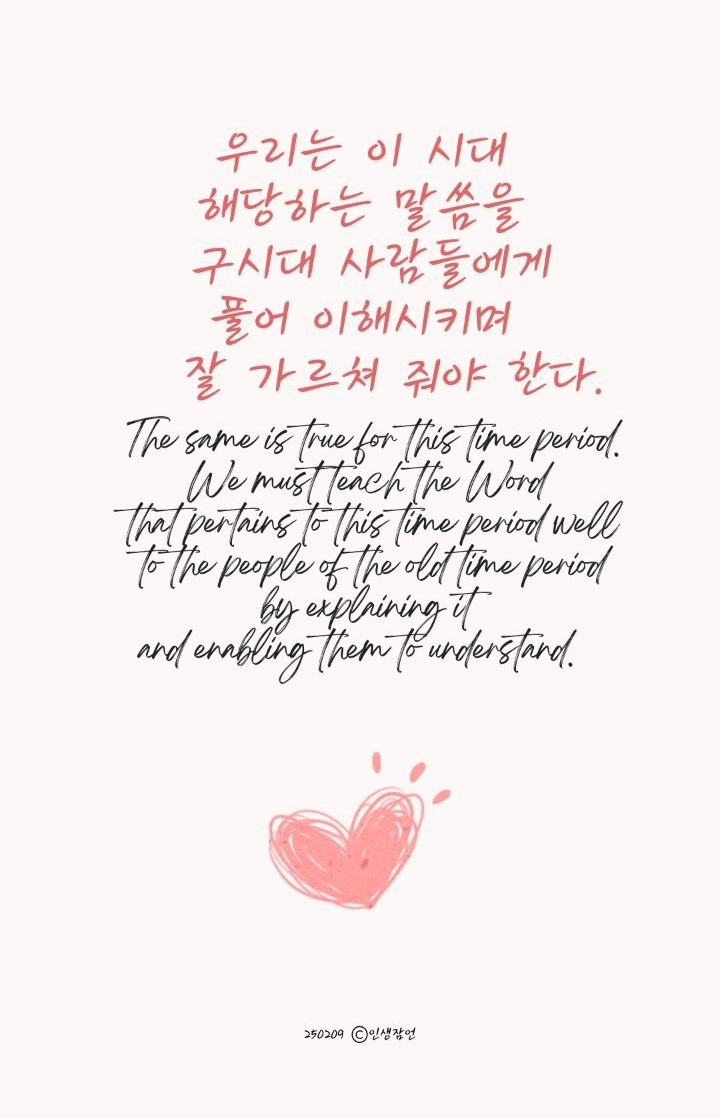 우리는 이 시대
해당하는 말씀을
구시대 사람들에게
풀어 이해시키며
잘 가르쳐 줘야 한다.
The same is true for this time period.
We must teach the Word
that pertains to this time period well
to the people of the old time period
by explaining it
and enabling them to understand.
250209 ©인생잠언